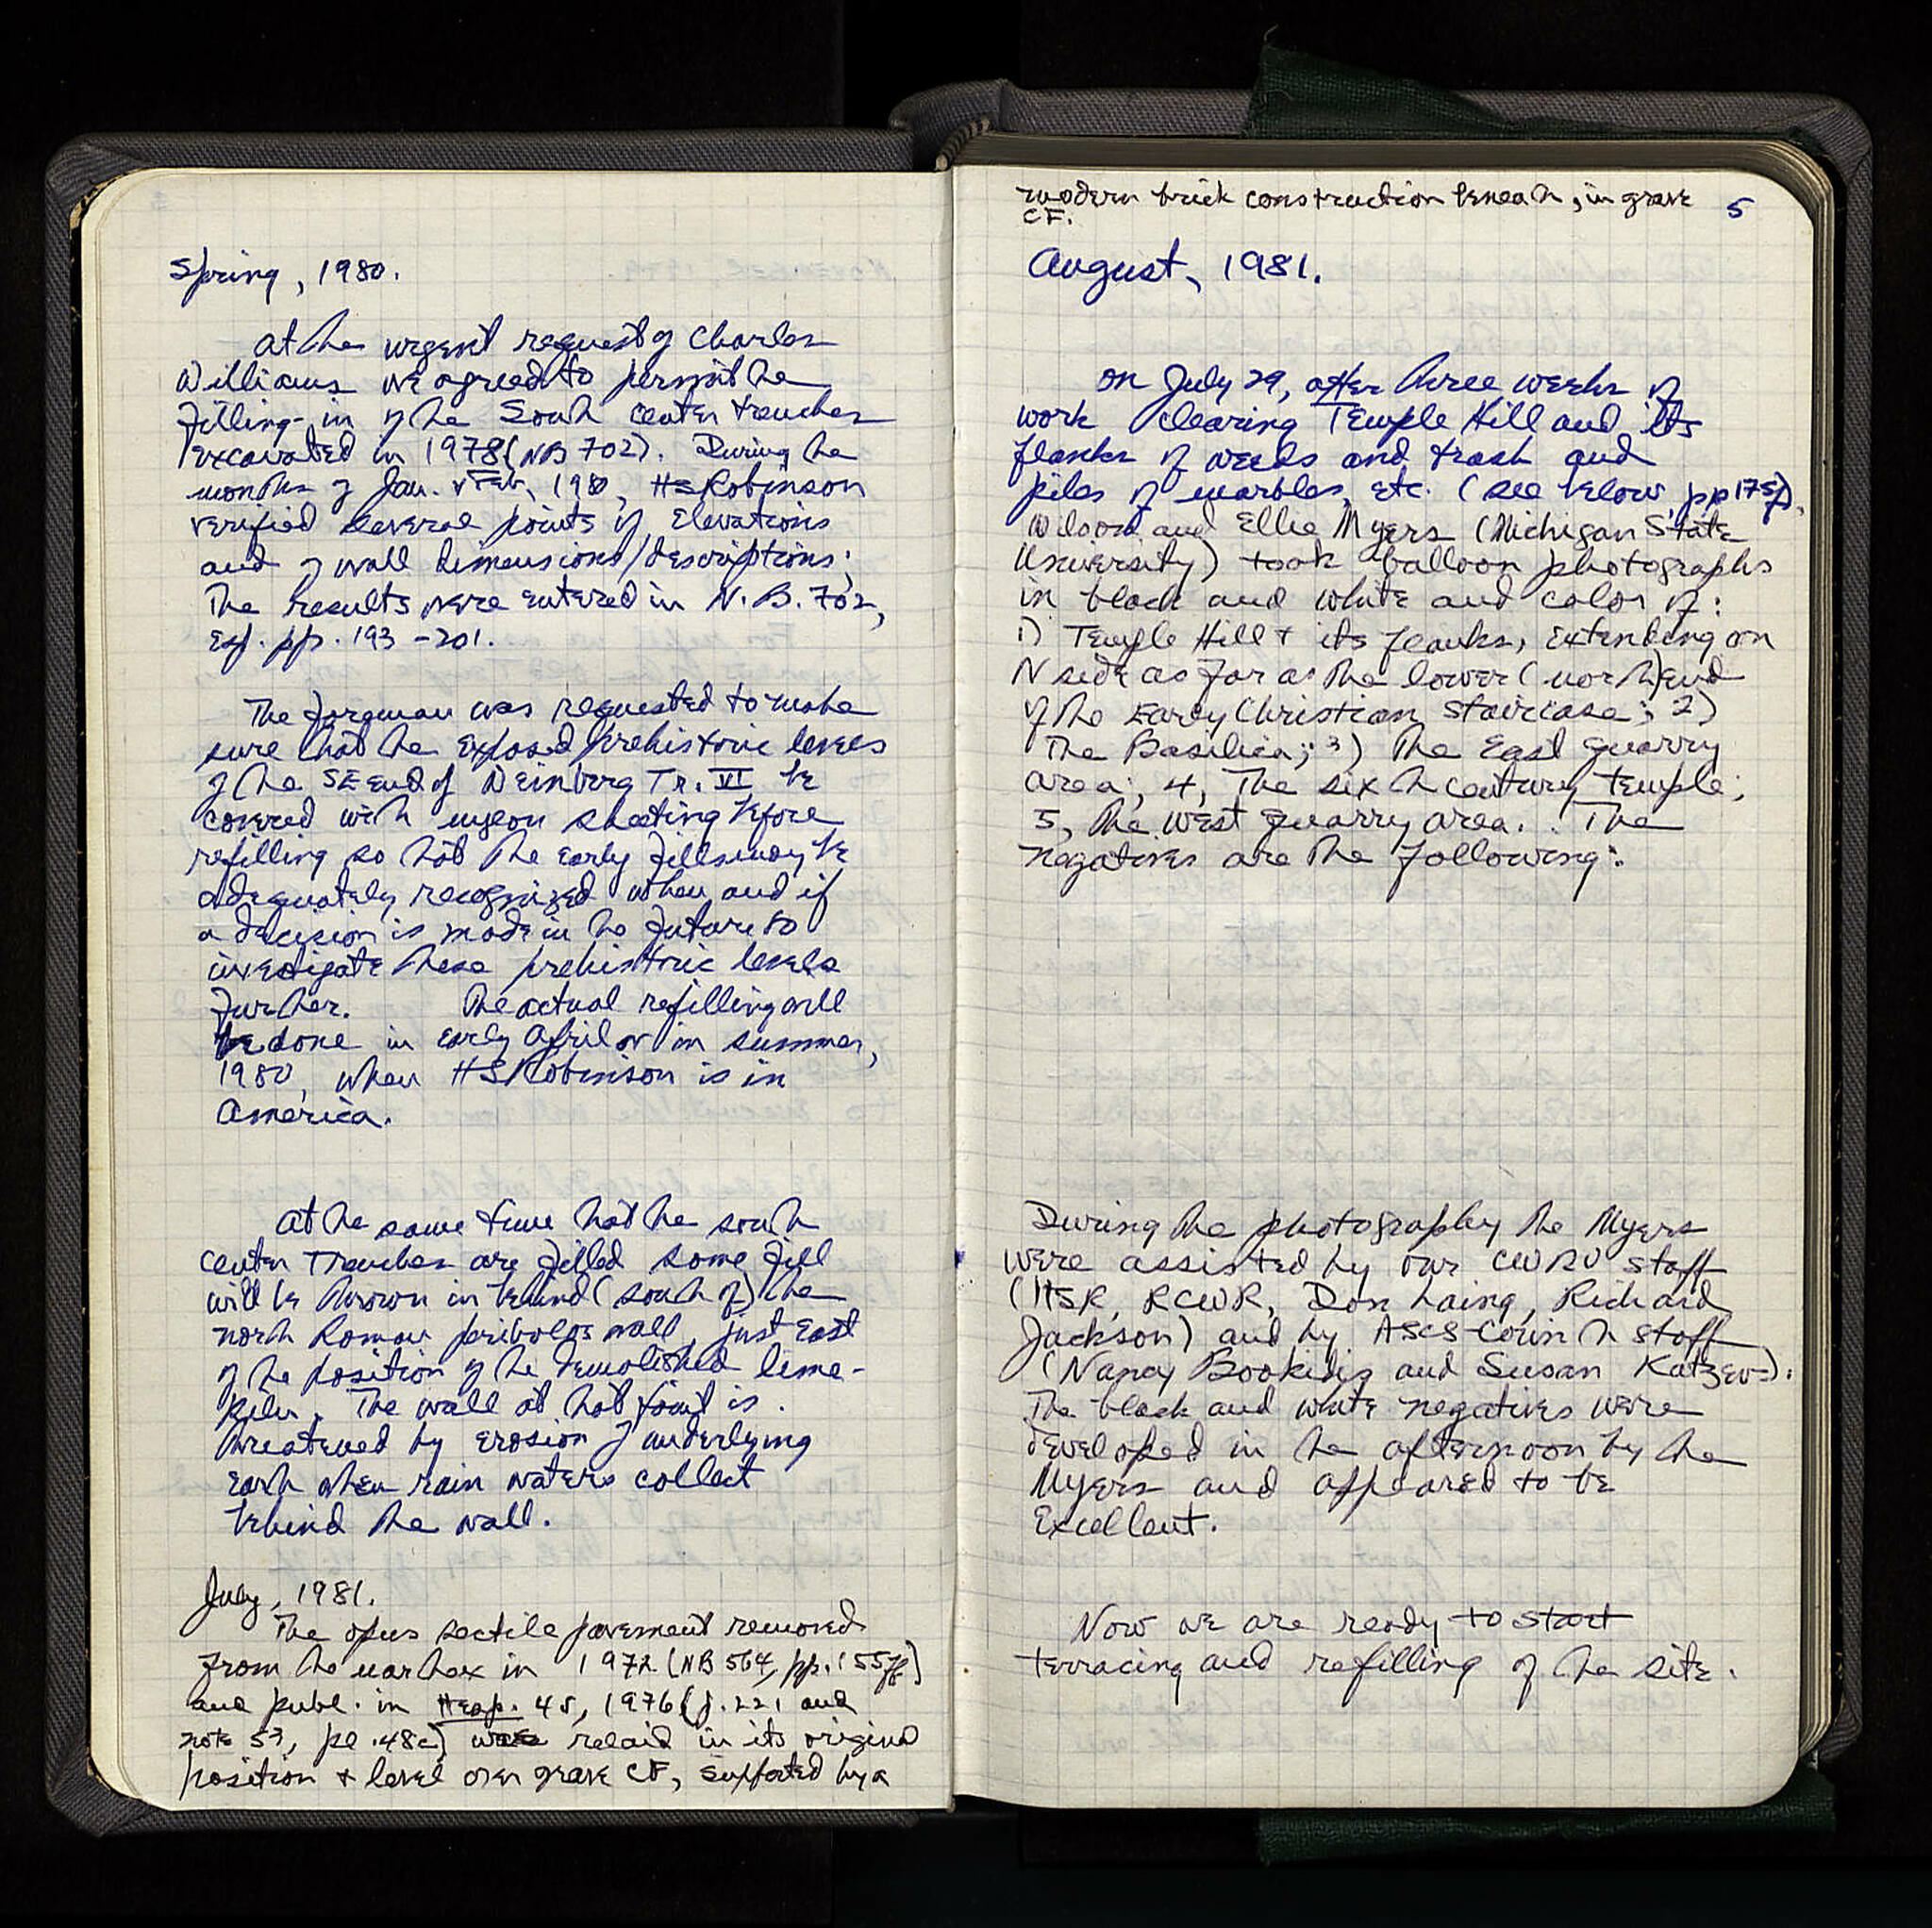 Spring, 1980.
At the urgent request of Charles
Williams we agreed to permit the
filling-in of the South Center trenches
excavated in 1978 (NB 702). During the
months of Jan. & Feb, 1980, HSRobinson
verified several points of elevations
and of wall dimensions/descriptions;
The results were entered in N.B. 702,
esp. pp. 193-201.
The foreman was requested to make
sure that the exposed prehistoric levels
of the SE end of Weinberg Tr. VI be
covered with nylon sheeting before
refilling so that the early fills may be
adequately recognized when and if
a decision is made in the future to
investigate these prehistoric levels
further. The actual refilling will
be done in early April or in summer,
1980, when HSRobinson is in
America.
At the same time that the south
center trenches are filled some fill
will be thrown in behind (south of) the
north Roman peribolos wall, just east
of the position of the demolished lime-
kiln. The wall at that point is
threatened by erosion of underlying
earth when rain waters collect
behind the wall.
July, 1981.
The opus sectile pavement removed
from the narthex in 1972 (NB 564, pp. 155ff)
and publ. in Hesp. 45, 1976 (p. 221 and
note 53, pl. 48c) was relaid in its original
position & level over grave CF, supported by a
modern brick construction beneath, in grave
CF.
5
August, 1981.
On July 29, after three weeks of
work clearing Temple Hill and its
flanks of weeds and trash and
piles of marbles, etc. (see below, pp 175f),
Wilson and Ellie Myers (Michigan State
University) took balloon photographs
in black and white and color of:
1) Temple Hill & its flanks, extending on
N side as far as the lower (north) end
of the Early Christian staircase; 2)
The Basilica; 3) The East quarry
area; 4, The sixth century temple;
5, the west quarry area. The
negatives are the following:
During the photography the Myers
were assisted by our CWRU staff
(HSR, RCWR, Don Laing, Richard
Jackson) and by ASCS-Corinth staff
(Nancy Bookidis and Susan Katzev).
The black and white negatives were
developed in the afternoon by the
Myers and appeared to be
Excellent.
Now we are ready to start
terracing and refilling of the site.